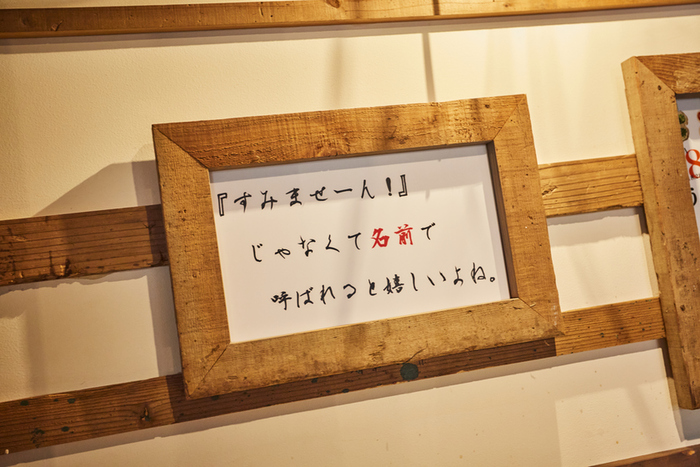 『すみませーん！』
じゃなくて名前で
呼ばれると嬉しいよね。